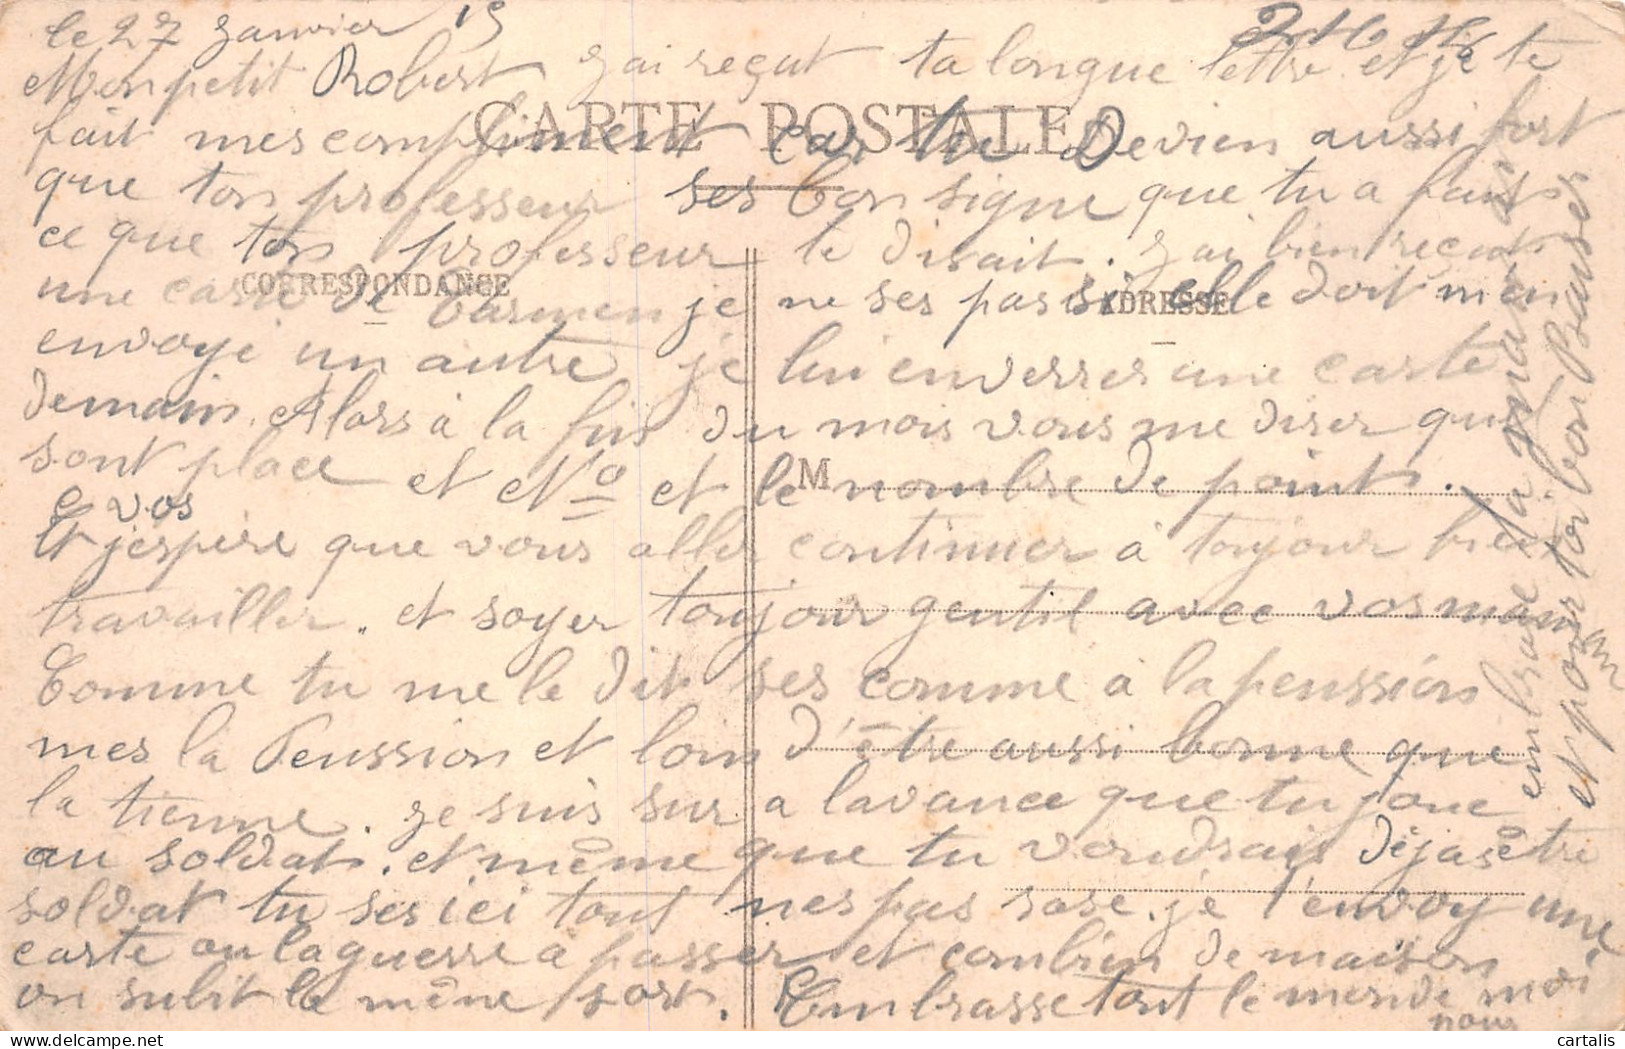 le 27 Janvier 15
Mon petit Robert J'ai reçut ta longue lettre et je te
CARTE POSTALE
fait mes compliment car tu devien aussi fort
que ton professeur ses bon signe que tu a fait
ce que ton professeur te disait. J'ai bien reçut
CORRESPONDANCE
ADRESSE
une carte de Carmen je ne ses pas si elle doit m'en
envoyé un autre je lui enverrer une carte
demain. Alors à la fin du mois vous me direr que
sont place et No et le nombre de point.
M
e vos
Et j'espère que vous aller continuer à toujour bien
travailler. et soyer toujour gentil avec vos maman
Comme tu me le dit ses comme à la penssion
mes la Penssion et loin d'être aussi bonne que
la tienne. Je suis sur a lavance que tu joue
au soldat. et même que tu voudrais déjas être
soldat tu ses ici tout nes pas rose. je t'envoy une
carte ou la guerre a passer et combien de maison
on subit le même sort. Embrasse tout le monde
pour moi
embrasse ta maman
et pour toi bon Baiser
delcampe.net
cartalis